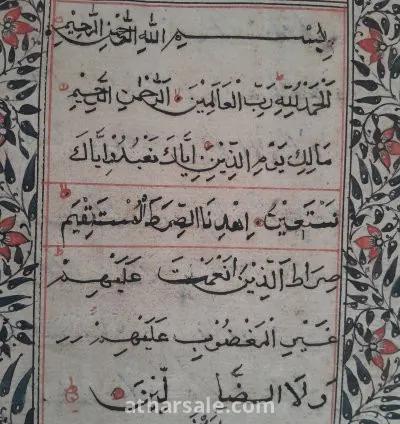 بِسْمِ اللّٰهِ الرَّحْمٰنِ الرَّحِيْمِ
اَلْحَمْدُ لِلّٰهِ رَبِّ الْعَالَمِيْنَ الرَّحْمٰنِ الرَّحِيْمِ
مَالِكِ يَوْمِ الدِّيْنِ اِيَّاكَ نَعْبُدُ وَاِيَّاكَ
نَسْتَعِيْنُ اِهْدِنَا الصِّرَاطَ الْمُسْتَقِيْمَ
صِرَاطَ الَّذِيْنَ اَنْعَمْتَ عَلَيْهِمْ
غَيْرِ الْمَغْضُوْبِ عَلَيْهِمْ
وَلَا الضَّالِّيْنَ
atharsale.com